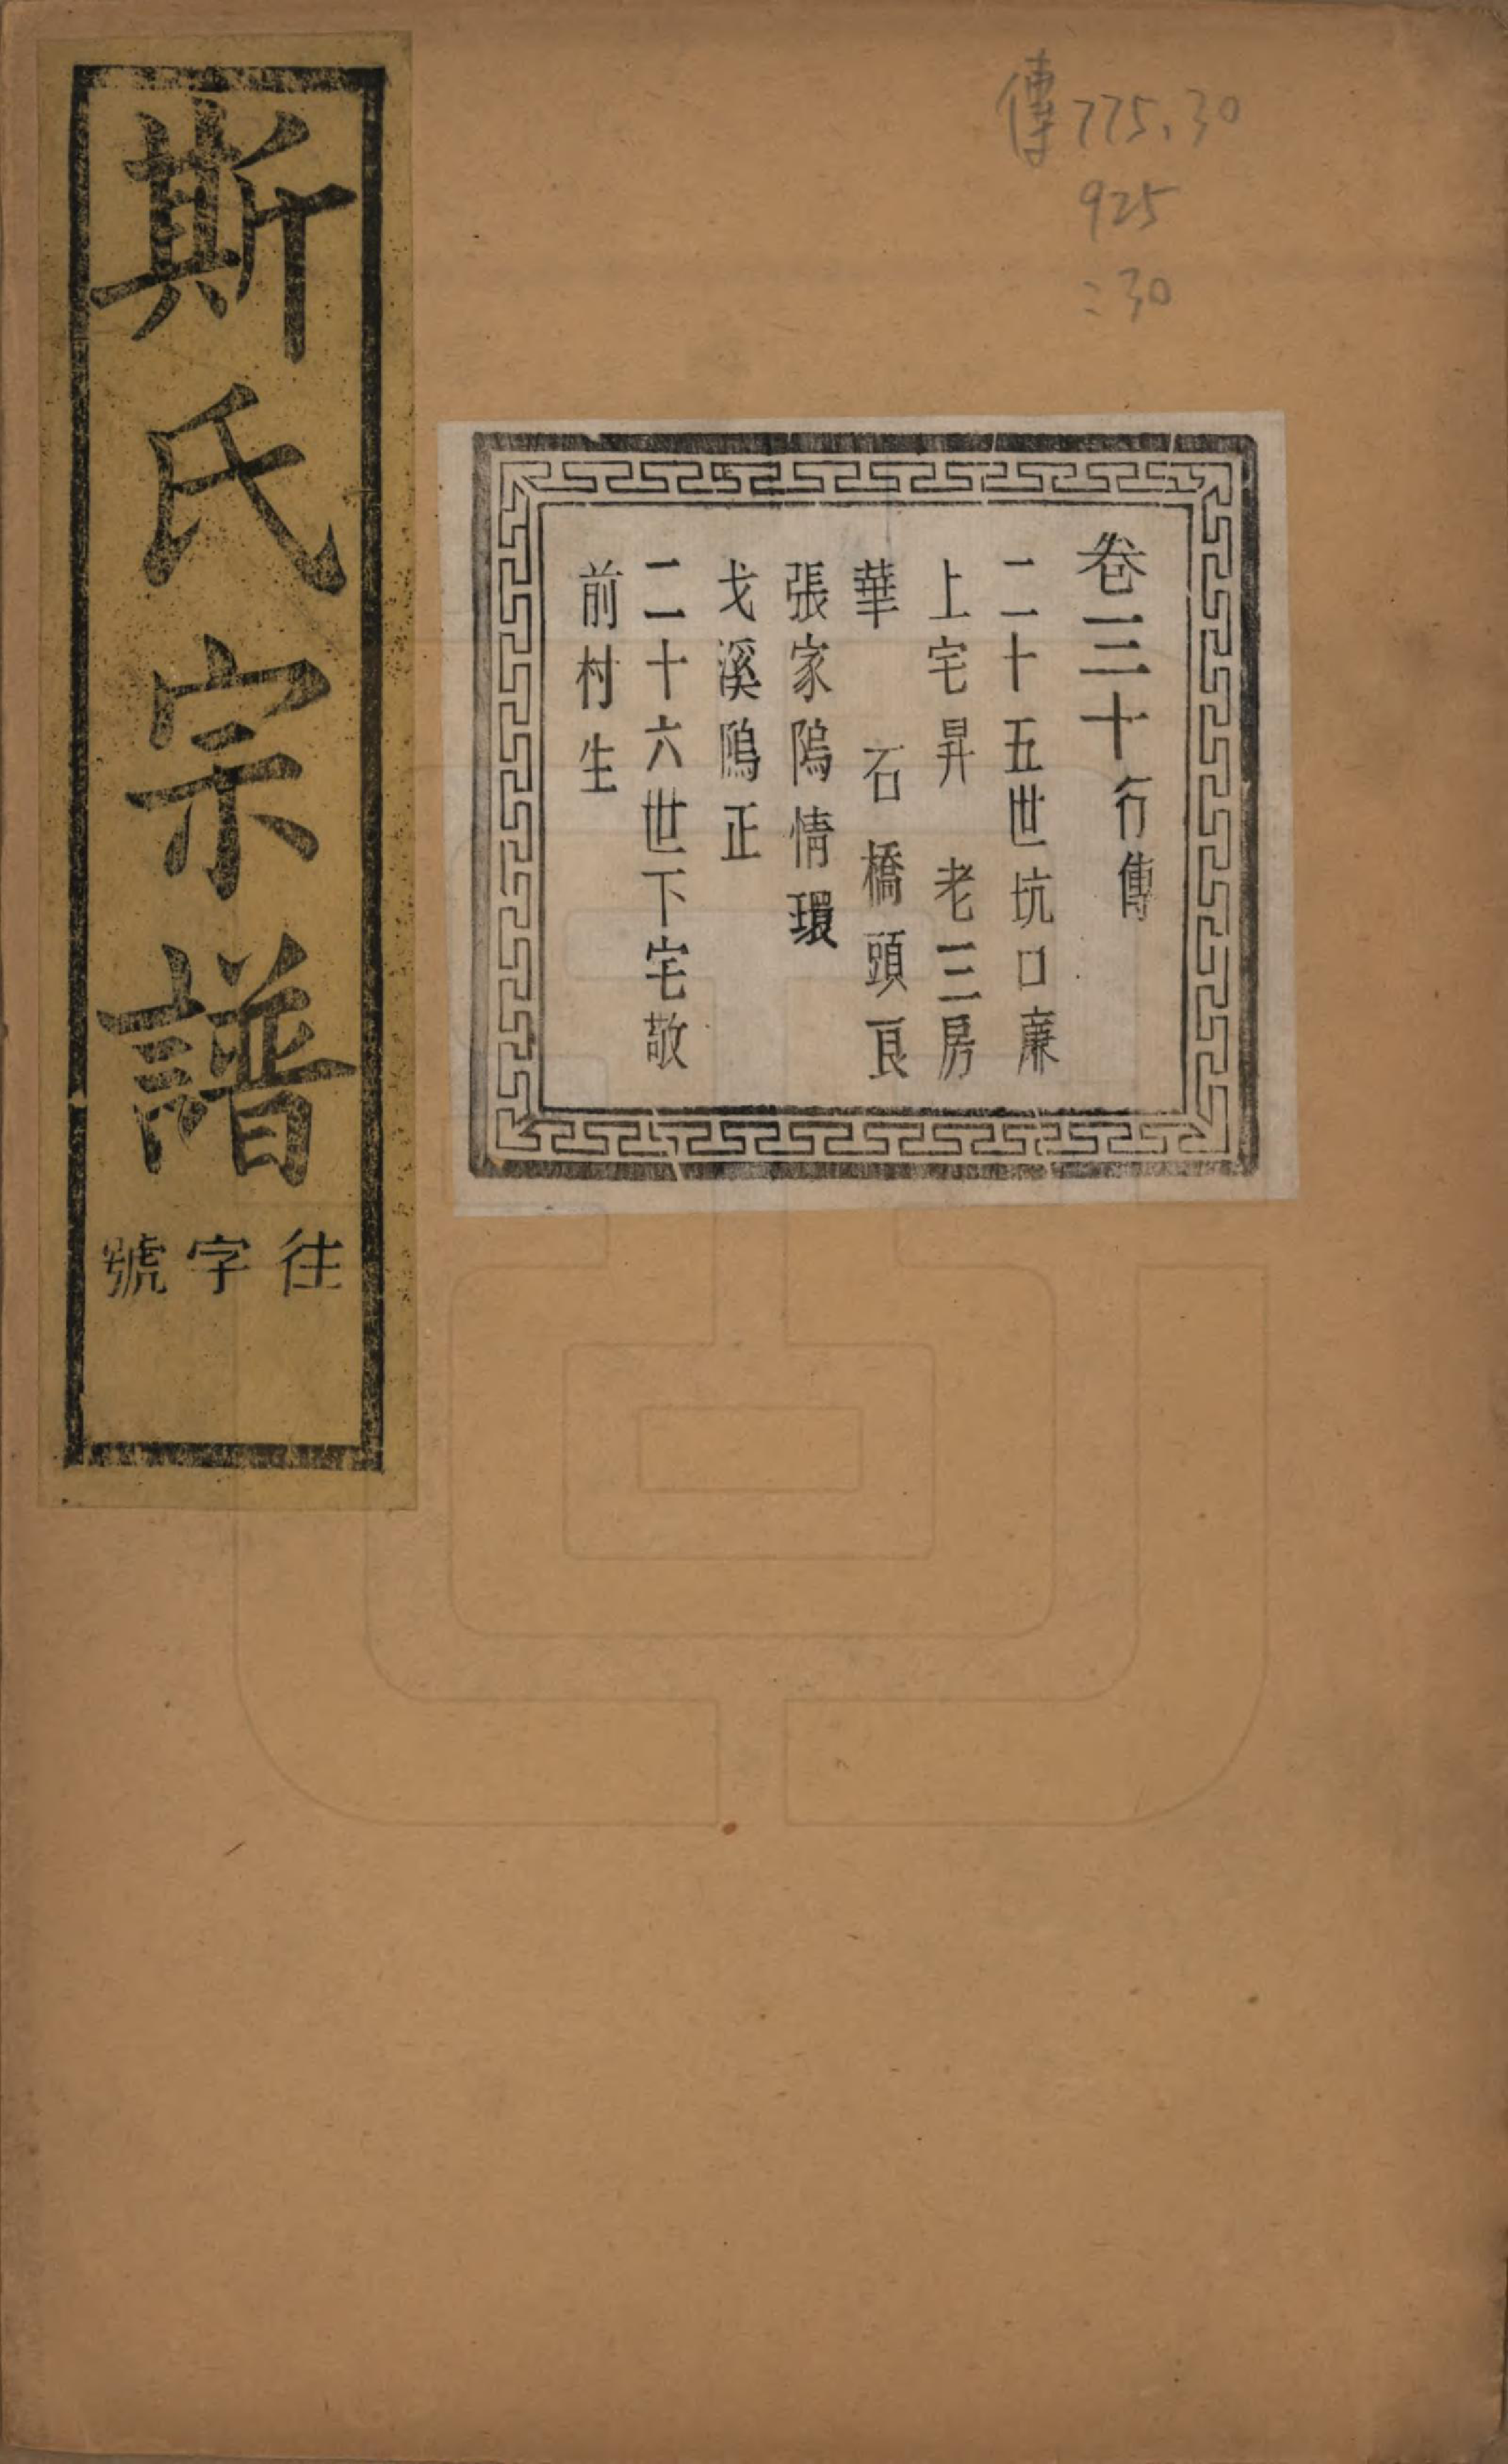 斯氏宗譜
往字號
傳775.30
925
:30
卷三十行傳
二十五世坑口廉
上宅昇 老三房
華 石橋頭良
張家隖情環
戈溪隖正
二十六世下宅敬
前村生